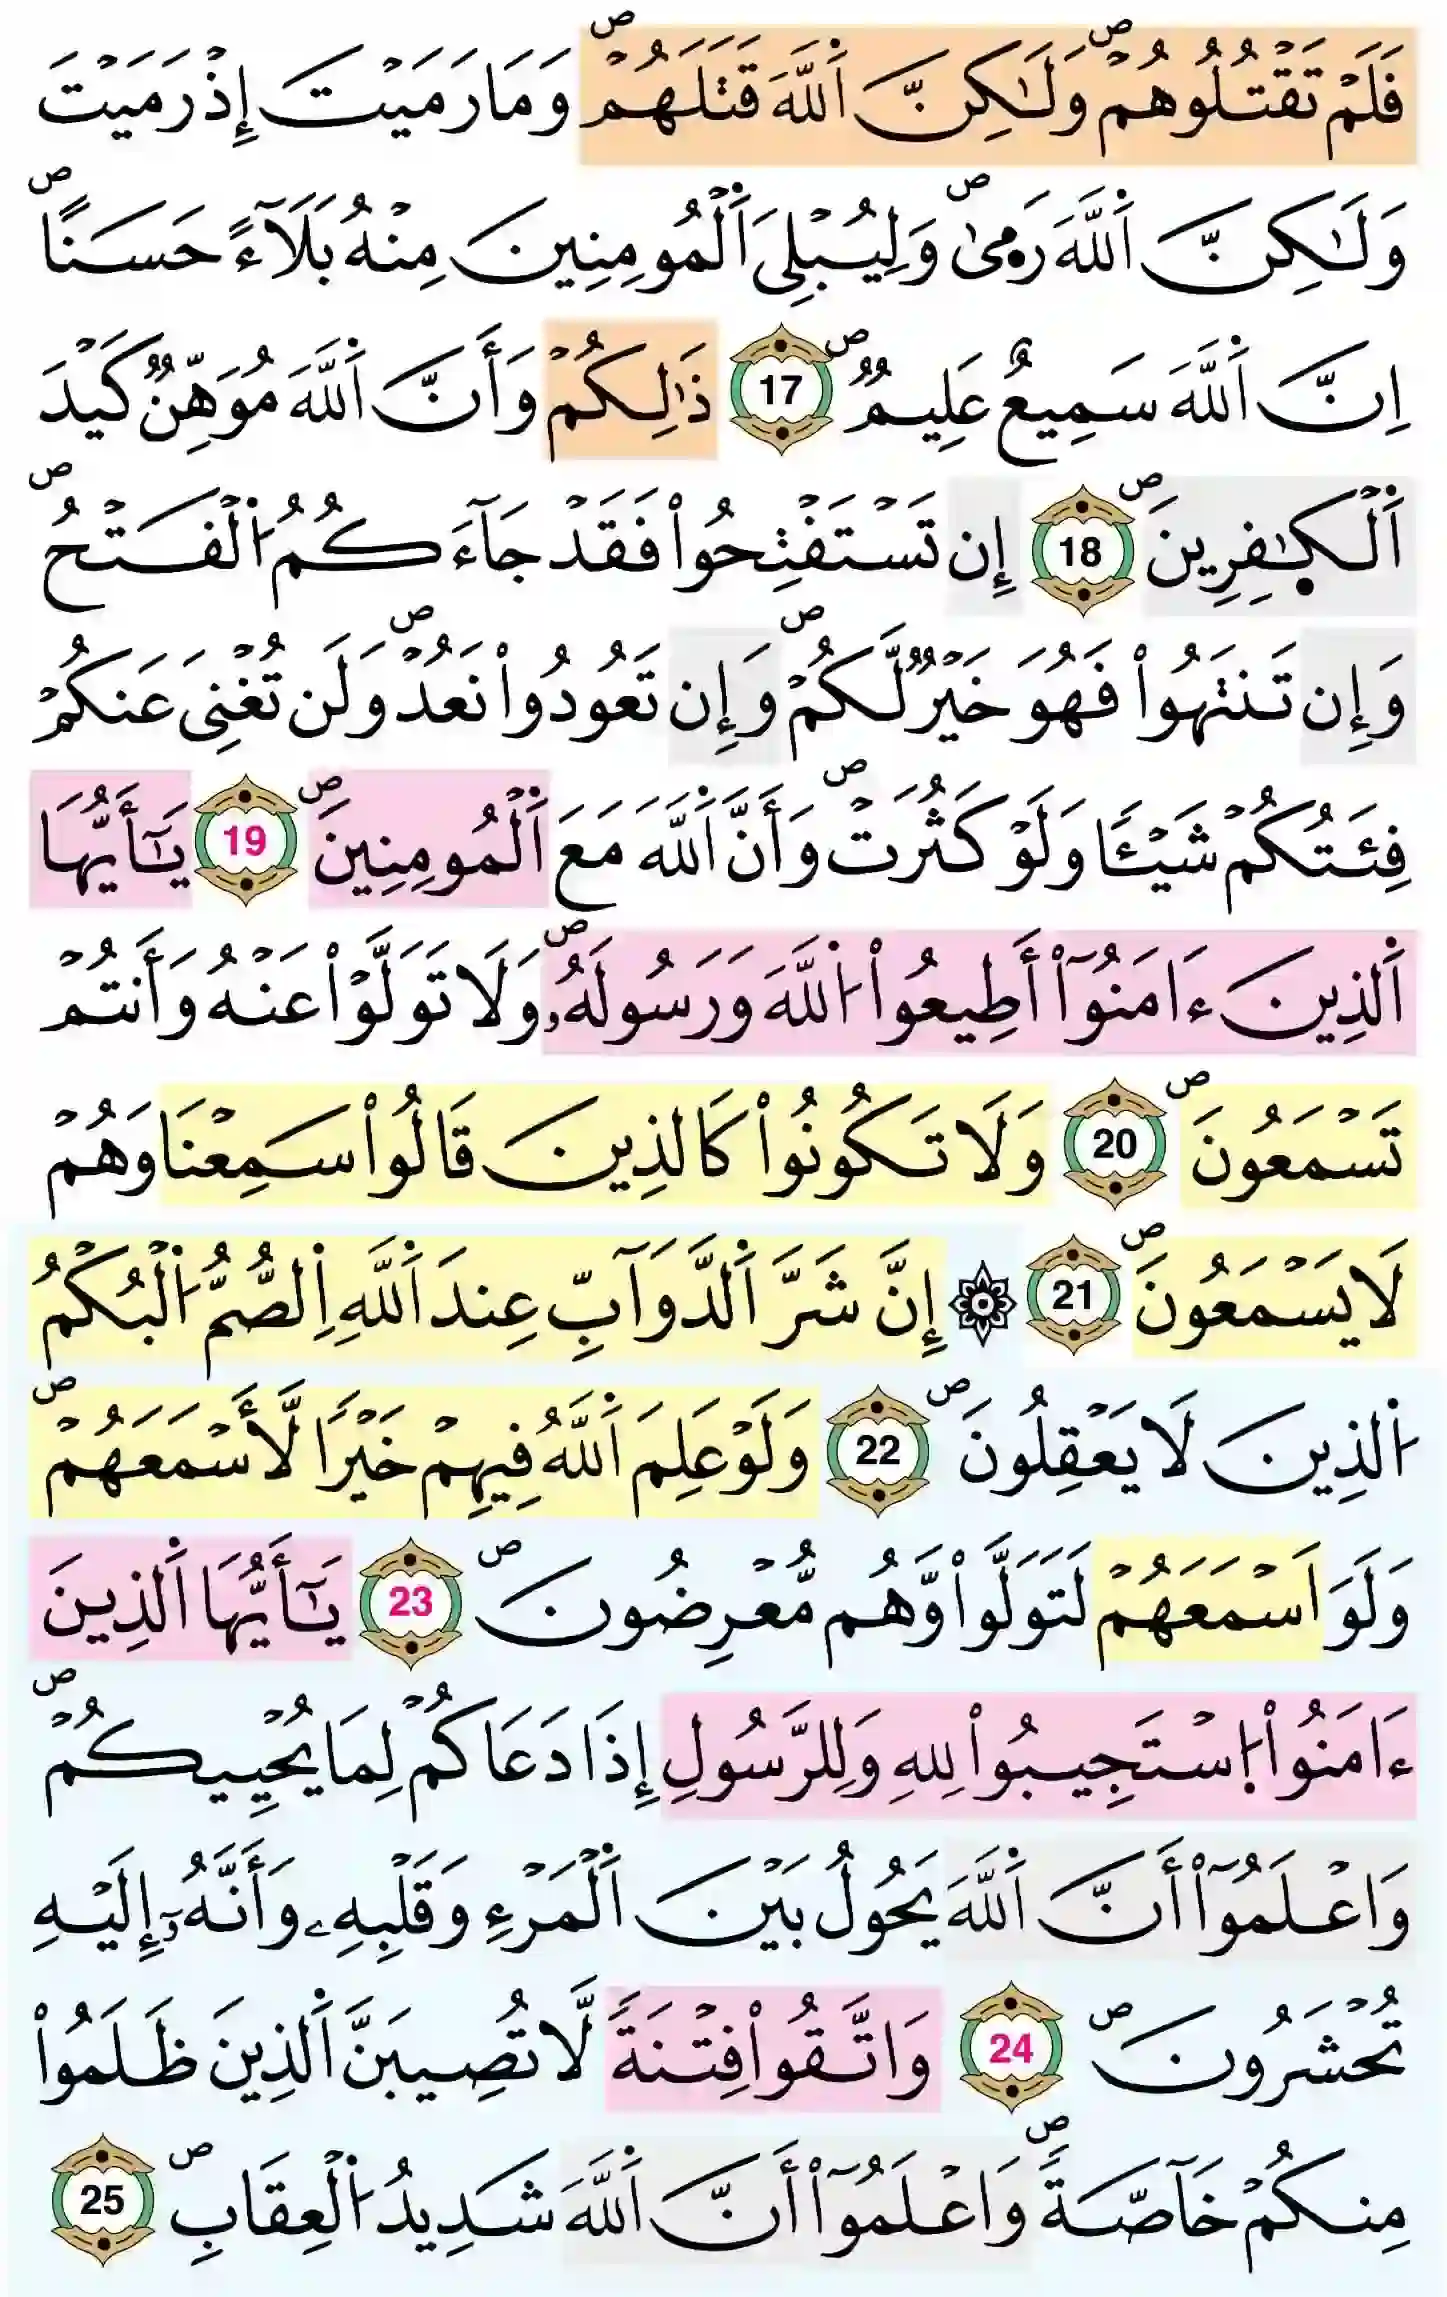 فَلَمْ تَقْتُلُوهُمْۖ وَلَٰكِنَّ اَ۬للَّهَ قَتَلَهُمْۖ وَمَا رَمَيْتَ إِذْ رَمَيْتَ
وَلَٰكِنَّ اَ۬للَّهَ رَم۪ىٰۖ وَلِيُبْلِيَ اَ۬لْمُومِنِينَ مِنْهُ بَلَآءً حَسَناًۖ
اِنَّ اَ۬للَّهَ سَمِيعٌ عَلِيمٌۖ 17 ذَٰلِكُمْ وَأَنَّ اَ۬للَّهَ مُوَهِّنٞ كَيْدَ
اَ۬لْكٰ۪فِرِينَۖ 18 إِن تَسْتَفْتِحُواْ فَقَدْ جَآءَكُمُ اُ۬لْفَتْحُۖ
وَإِن تَنتَهُواْ فَهُوَ خَيْرٞ لَّكُمْۖ وَإِن تَعُودُواْ نَعُدْۖ وَلَن تُغْنِيَ عَنكُمْ
فِئَتُكُمْ شَيْـٔاً وَلَوْ كَثُرَتْۖ وَأَنَّ اَ۬للَّهَ مَعَ اَ۬لْمُومِنِينَۖ 19 يَٰٓأَيُّهَا
اَ۬لذِينَ ءَامَنُوٓاْ أَطِيعُواْ اُ۬للَّهَ وَرَسُولَهُۥۖ وَلَا تَوَلَّوْاْ عَنْهُ وَأَنتُمْ
تَسْمَعُونَۖ 20 وَلَا تَكُونُواْ كَالذِينَ قَالُواْ سَمِعْنَا وَهُمْ
لَا يَسْمَعُونَۖ 21 ۞ إِنَّ شَرَّ اَ۬لدَّوَآبِّ عِندَ اَ۬للَّهِ اِ۬لصُّمُّ اُ۬لْبُكْمُ
اُ۬لذِينَ لَا يَعْقِلُونَۖ 22 وَلَوْ عَلِمَ اَ۬للَّهُ فِيهِمْ خَيْراً لَّأَسْمَعَهُمْۖ
وَلَوَ اَسْمَعَهُمْ لَتَوَلَّواْ وَّهُم مُّعْرِضُونَۖ 23 يَٰٓأَيُّهَا اَ۬لذِينَ
ءَامَنُواْ اُ۪سْتَجِيبُواْ لِلهِ وَلِلرَّسُولِ إِذَا دَعَاكُمْ لِمَا يُحْيِيكُمْۖ
وَاعْلَمُوٓاْ أَنَّ اَ۬للَّهَ يَحُولُ بَيْنَ اَ۬لْمَرْءِ وَقَلْبِهِۦ وَأَنَّهُۥٓ إِلَيْهِ
تُحْشَرُونَۖ 24 وَاتَّقُواْ فِتْنَةً لَّا تُصِيبَنَّ اَ۬لذِينَ ظَلَمُواْ
مِنكُمْ خَآصَّةًۖ وَاعْلَمُوٓاْ أَنَّ اَ۬للَّهَ شَدِيدُ اُ۬لْعِقَابِۖ 25